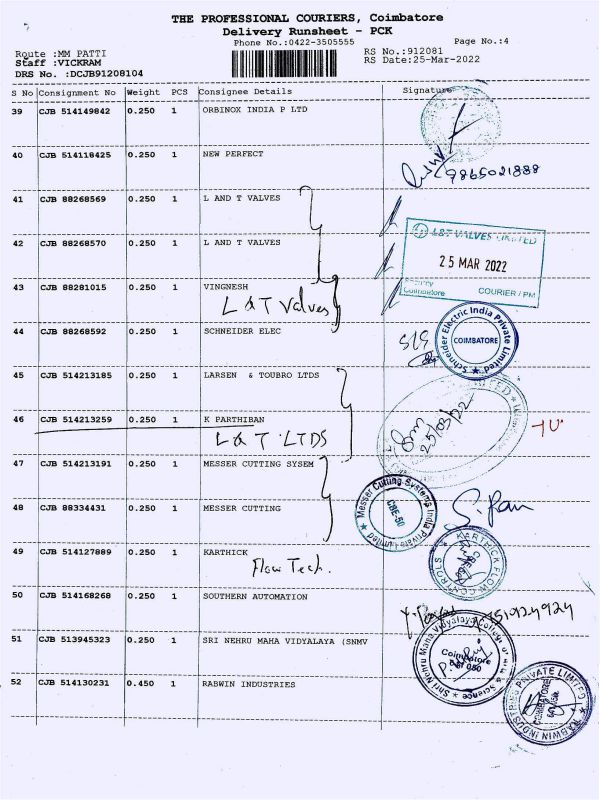 THE PROFESSIONAL COURIERS, Coimbatore
Delivery Runsheet - PCK
Phone No.:0422-3505555
Page No.:4
Route :MM PATTI
RS No.:912081
Staff :VICKRAM
RS Date:25-Mar-2022
DRS No. :DCJB91208104
S No Consignment No Weight PCS Consignee Details Signature
39 CJB 514149842 0.250 1 ORBINOX INDIA P LTD
40 CJB 514118425 0.250 1 NEW PERFECT
9865021888
41 CJB 88268569 0.250 1 L AND T VALVES
L&T VALVES LIMITED
42 CJB 88268570 0.250 1 L AND T VALVES
25 MAR 2022
43 CJB 88281015 0.250 1 VINGNESH
Coimbatore COURIER / PM
L & T Valves
44 CJB 88268592 0.250 1 SCHNEIDER ELEC
Schneider Electric India Private Limited
COIMBATORE
45 CJB 514213185 0.250 1 LARSEN & TOUBRO LTDS
46 CJB 514213259 0.250 1 K PARTHIBAN
25/03/22
L & T LTDS
47 CJB 514213191 0.250 1 MESSER CUTTING SYSEM
48 CJB 88334431 0.250 1 MESSER CUTTING
Messer Cutting Systems India Private Limited
CBE-50
49 CJB 514127889 0.250 1 KARTHICK
Flow Tech.
KARTHICK FLOW CONTROLS
50 CJB 514168268 0.250 1 SOUTHERN AUTOMATION
51 CJB 513945323 0.250 1 SRI NEHRU MAHA VIDYALAYA (SNMV
Shri Nehru Maha Vidyalaya College of Arts & Science
Coimbatore
641 050
52 CJB 514130231 0.450 1 RABWIN INDUSTRIES
RABWIN INDUSTRIES PRIVATE LIMITED
COIMBATORE